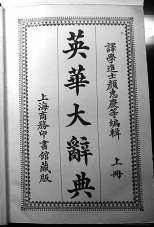 譯學進士顏惠慶等編輯
上冊
英華大辭典
上海商務印書館藏版